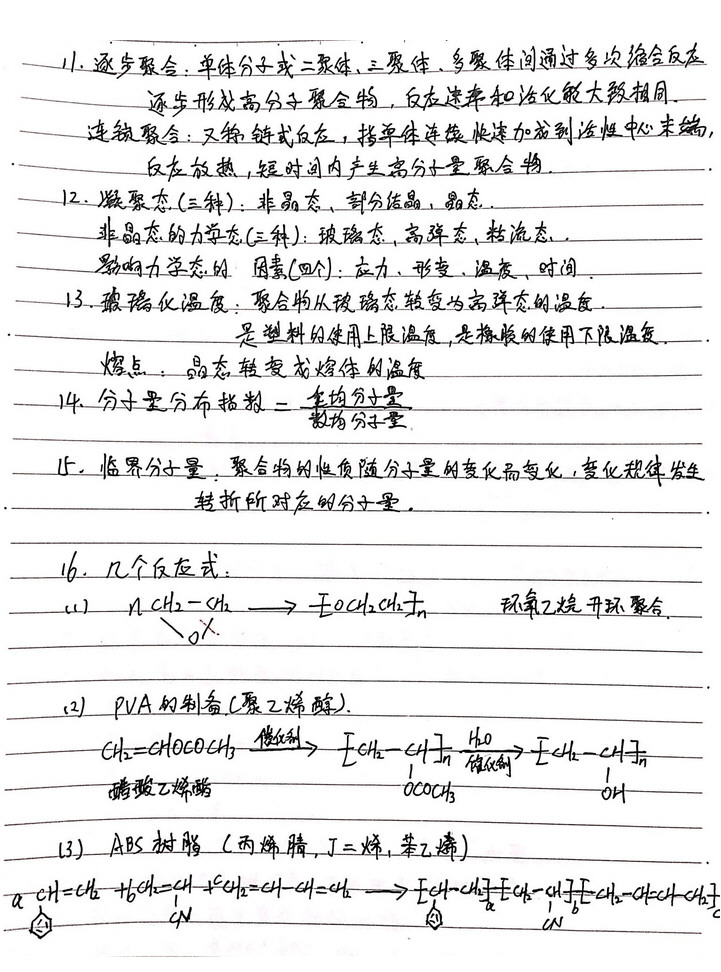 11. 逐步聚合：单体分子或二聚体、三聚体、多聚体间通过多次缩合反应
逐步形成高分子聚合物，反应速率和活化能大致相同.
连锁聚合：又称链式反应，指单体连续快速加成到活性中心末端，
反应放热，短时间内产生高分子量聚合物.
12. 凝聚态(三种)：非晶态、部分结晶、晶态.
非晶态的力学态(三种)：玻璃态、高弹态、粘流态.
影响力学态的 因素(四个)：应力、形变、温度、时间.
13. 玻璃化温度：聚合物从玻璃态转变为高弹态的温度.
是塑料的使用上限温度，是橡胶的使用下限温度.
熔点：晶态转变成熔体的温度
14. 分子量分布指数 = 重均分子量
数均分子量
15. 临界分子量：聚合物的性质随分子量的变化而变化，变化规律发生
转折所对应的分子量.
16. 几个反应式：
(1) n CH2-CH2 → -[OCH2CH2]n 环氧乙烷开环聚合.
O
(2) PVA的制备(聚乙烯醇).
CH2=CHOCOCH3 催化剂→ -[CH2-CH]n H2O 催化剂→ -[CH2-CH]n
醋酸乙烯酯 OCOCH3 OH
(3) ABS树脂 (丙烯腈，丁二烯，苯乙烯)
a CH=CH2 + b CH2=CH + c CH2=CH-CH=CH2 → -[CH-CH2]a-[CH2-CH]b-[CH2-CH=CH-CH2]c
CN CN